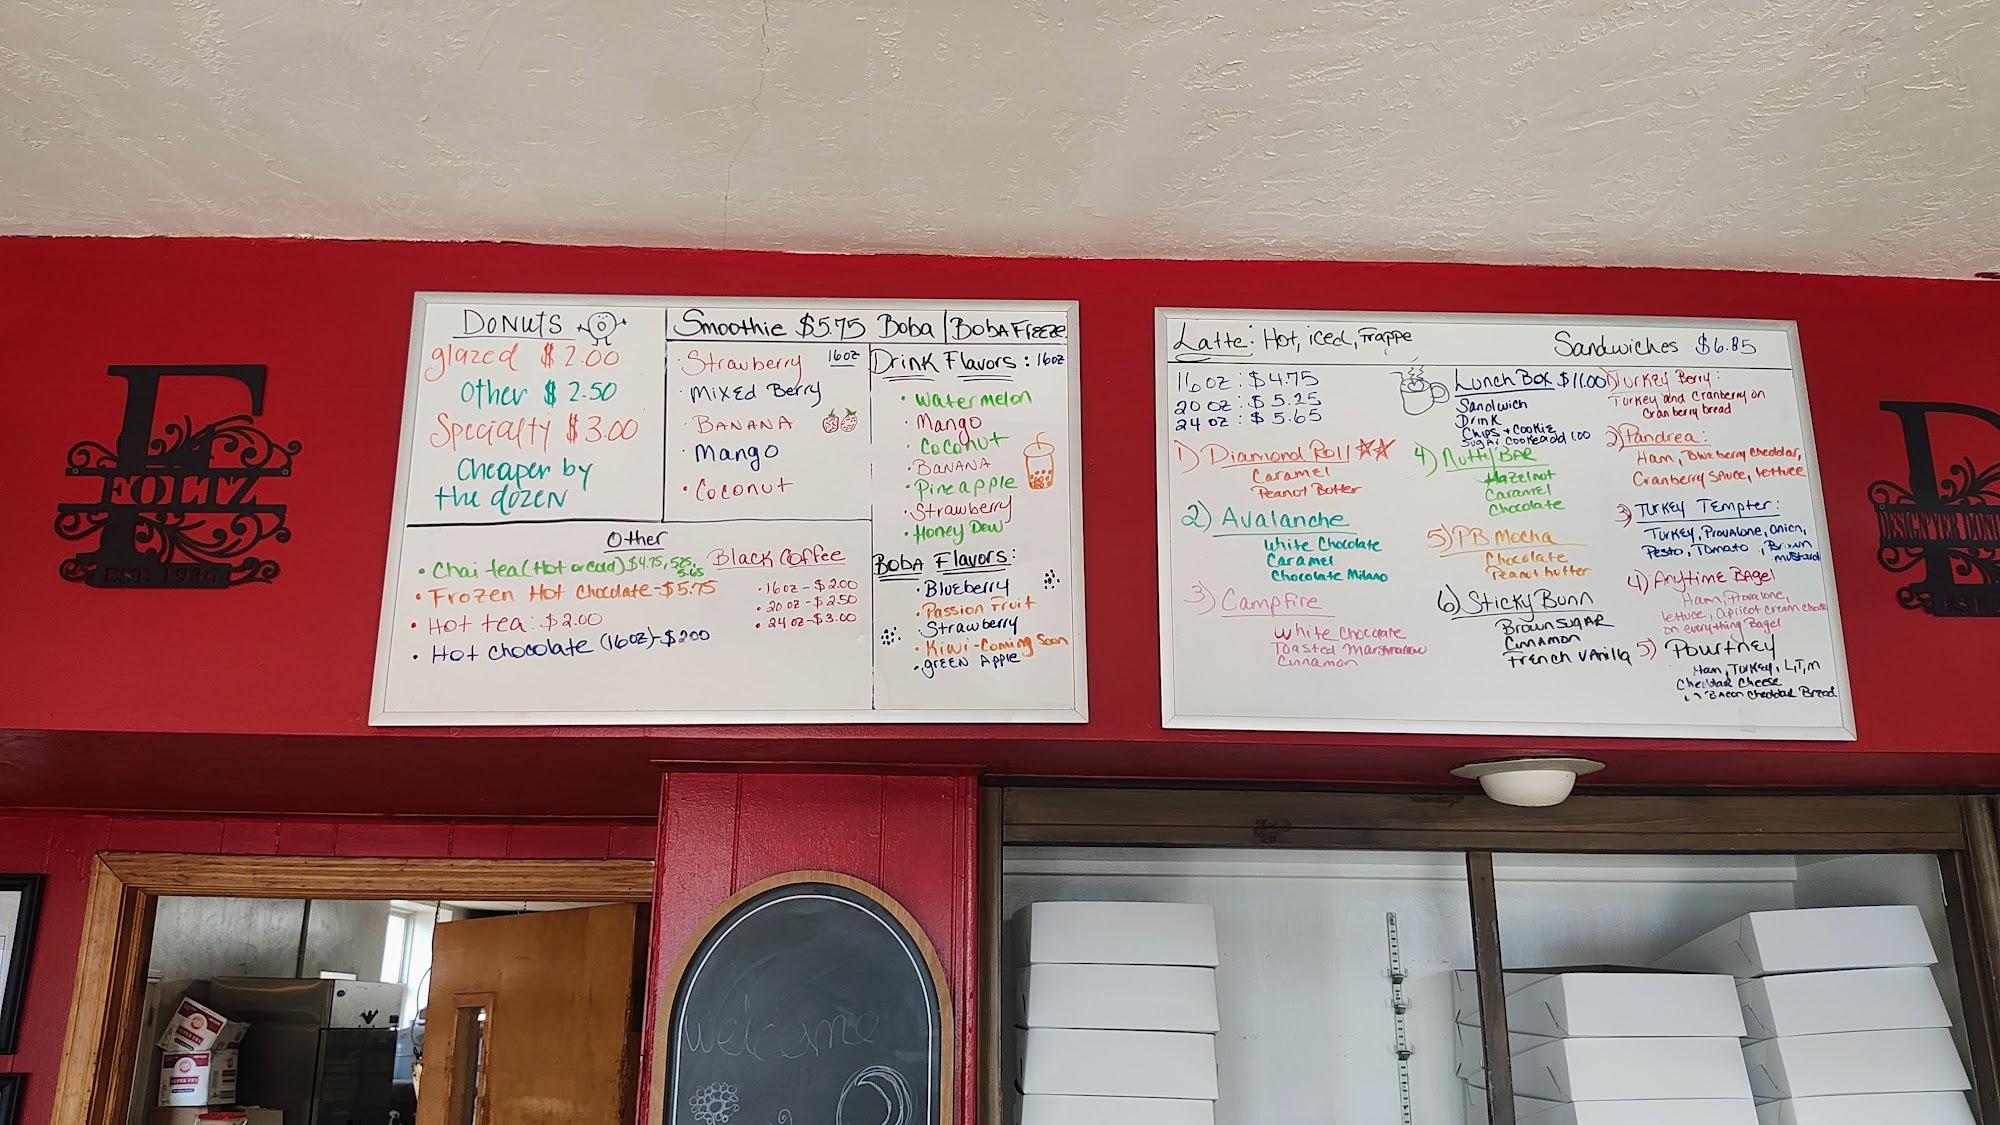 FOLTZ
EST. 1936
DONUTS
glazed $2.00
Other $2.50
Specialty $3.00
Cheaper by
the dozen
Smoothie $5.75
Strawberry 16oz
Mixed Berry
BANANA
Mango
Coconut
Boba | Boba Freeze
Drink Flavors: 16oz
Watermelon
Mango
Coconut
BANANA
Pineapple
Strawberry
Honey Dew
Boba Flavors:
Blueberry
Passion Fruit
Strawberry
Kiwi-Coming Soon
green Apple
Other
Chai tea (Hot or cold) $4.75, 5.25,
5.65
Frozen Hot Chocolate-$5.75
Hot tea: $2.00
Hot Chocolate (16oz)-$2.00
Black Coffee
16oz-$2.00
20oz-$2.50
24oz-$3.00
Latte: Hot, iced, Frappe
16oz: $4.75
20oz: $5.25
24oz: $5.65
1) Diamond Roll
Caramel
Peanut Butter
2) Avalanche
White Chocolate
Caramel
Chocolate Milano
3) Campfire
White Chocolate
Toasted Marshmallow
Cinnamon
Lunch Box $11.00
Sandwich
Drink
Chips + Cookie
Sugar Cookie add 1.00
4) Nutty BAR
Hazelnut
Caramel
Chocolate
5) PB Mocha
Chocolate
Peanut butter
6) Sticky Bunn
Brown SUGAR
Cinnamon
French Vanilla
Sandwiches $6.85
1) Turkey Berry:
Turkey and Cranberry on
Cranberry bread
2) Pandrea:
Ham, Blueberry cheddar,
Cranberry sauce, lettuce
3) Turkey Tempter:
Turkey, Provalone, Onion,
Pesto, Tomato, Brown
mustard
4) Anytime Bagel
Ham, Provalone,
lettuce, Apricot cream cheese
on everything Bagel
5) Pourtney
Ham, Turkey, L, T, M
Cheddar Cheese
BACON Cheddar Bread
welcome